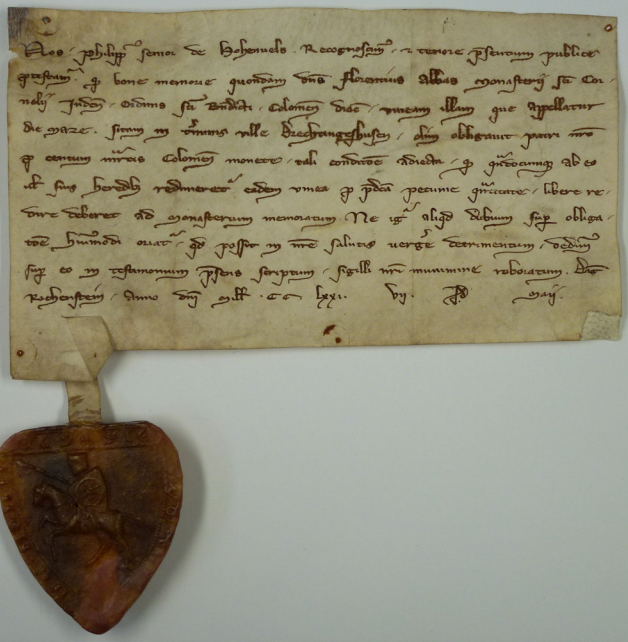 Nos. philipp' senior de hohenvels. Recognoscim' & tenore p̄sentium publice
p̄testam'. q̵ bone memorie quondam dn̄s florentius Abbas Monasterii sc̄i Cor-
nelii Inden̄. Ordinis sc̄i Bn̄dicti. Colonien̄ dioc̄. vineam illam que appellatur
die maze. sitam in t'minis ville Drechtingeshusen. olim obligauit patri nr̄o
p̱ centum marcis Colonien̄ monete. tali condit̄oe adiecta. q̵ q̄ndocumq; ab eo
ul̄ suis heredib; redimeret' eadem vinea p̱ p̄dc̄a pecunie q̄ntitate. libere re-
dire deberet ad Monasterium memoratum. Ne ig' aliq̄d dubium sup̱ obliga-
t̄oe hui'modi oriat'. q̄d possit in nr̄e salutis verge' detrimentum. dedim'
sup̱ eo in testimonium p̄sens scriptum. sigilli nr̄i munimine roboratum. Dat̄
Richenstein. Anno dn̄i Mil̄l. CC lxxi. vii. Id' Maii.